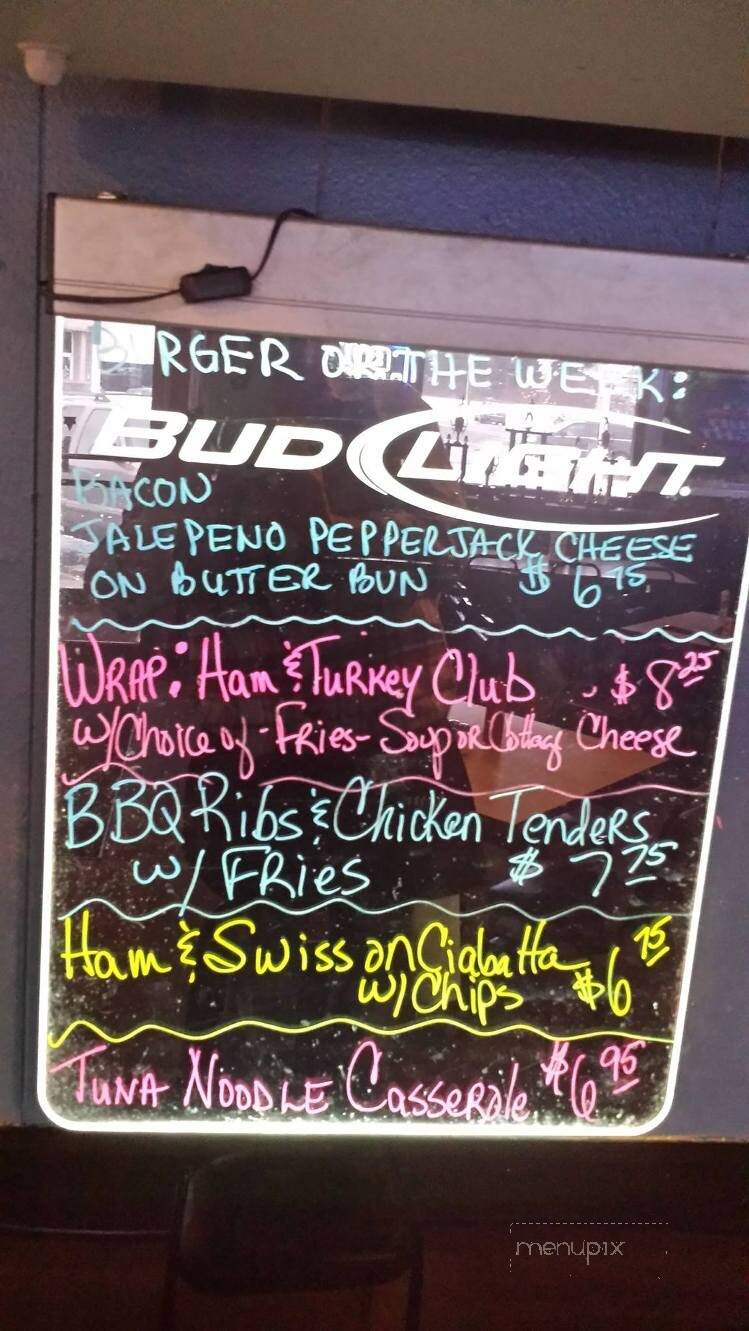 BURGER OF THE WEEK:
BUD LIGHT
BACON
JALEPENO PEPPERJACK CHEESE
ON BUTTER BUN $6 75
WRAP: Ham & TURKey Club - $8 25
w/Choice of - FRies - Soup OR Cottag Cheese
BBQ Ribs & Chicken TendeRs
w/ FRies $7 75
Ham & Swiss on Ciabatta
w/ Chips $6 75
TUNA NOODLE CasseRole $6 95
menupix